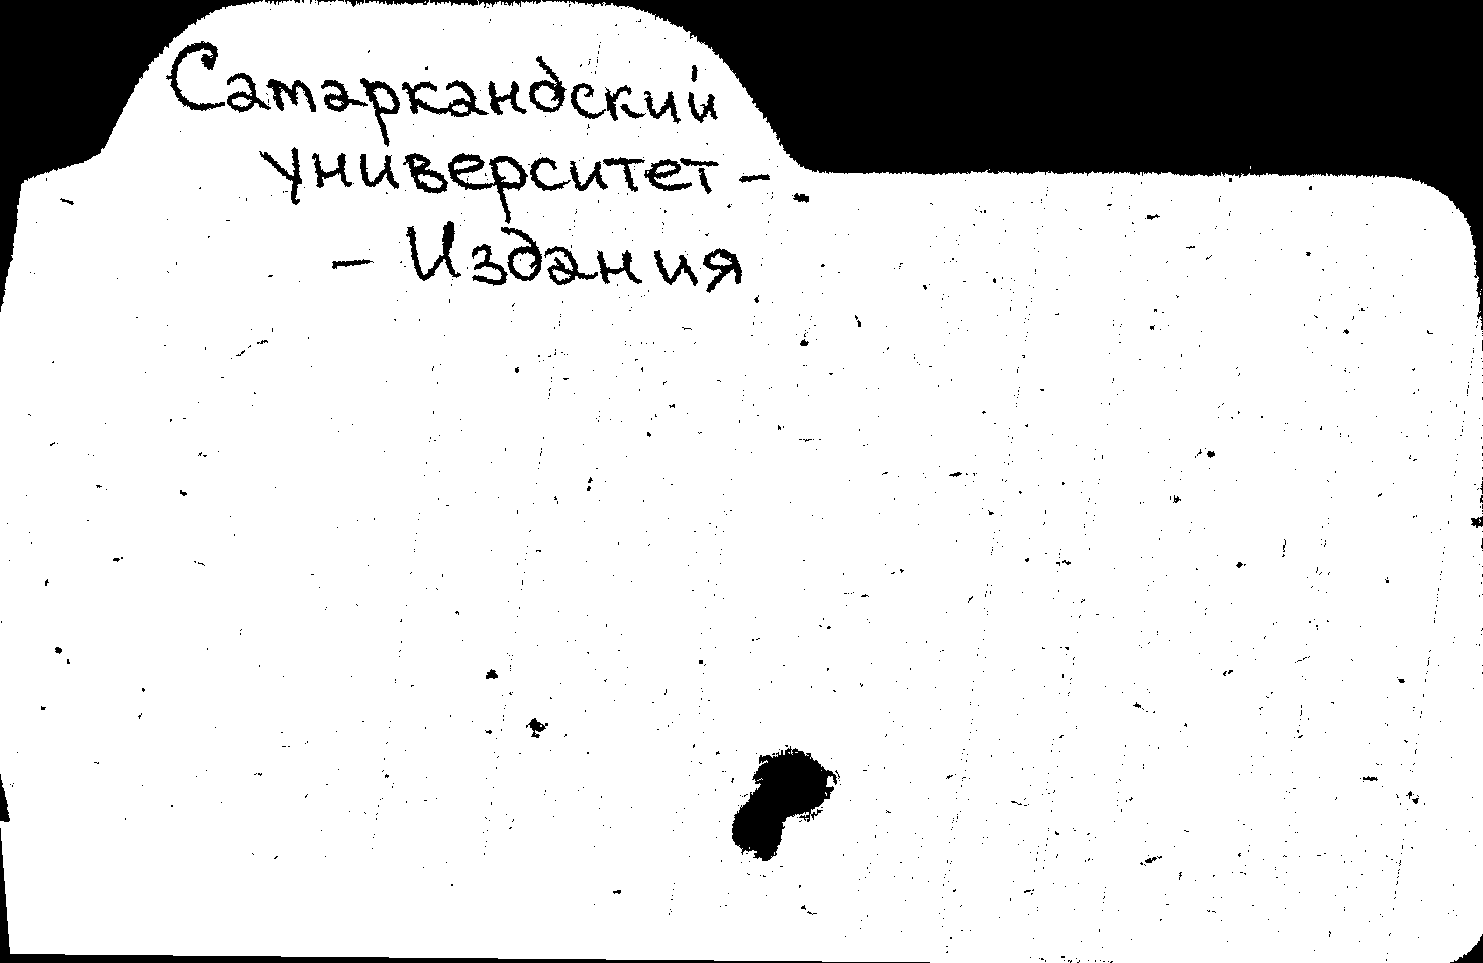 Самаркандский
университет –
– Издания